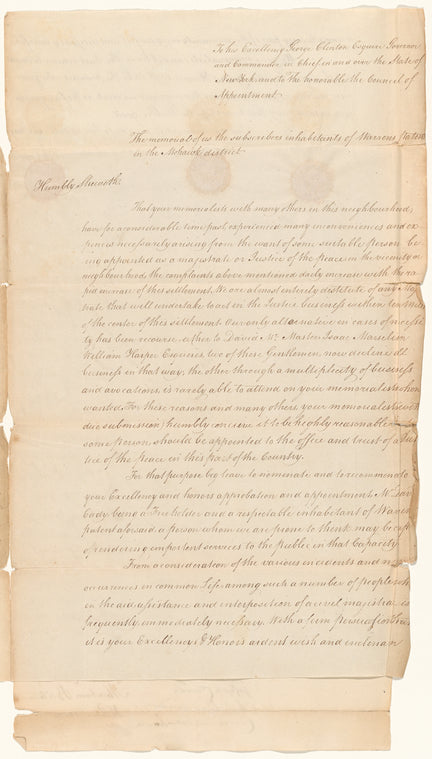 To his Excellency George Clinton Esquire Governor
and Commander in Chief in and over the State of
New York and to the honorable the Council of
Appointment
The memorial of us the subscribers inhabitants of Warrons
in the Mohawk district
Humbly Sheweth:
That your memorialists with many others in this neighbourhood,
have for a considerable time past, experienced many inconveniences and ex
pences necessarily arising from the want of some suitable person be
ing appointed as a magistrate or Justice of the peace in the vicinity or
neighbourhood, the complaints above mentioned daily increase with the ra
pid increase of this settlement. We are almost entirely destitute of any
trate that will undertake to act in the Justice business within ten Miles
of the center of this settlement. Our only alternative in cases of necessi
ty has been recourse either to David Mc Masters Isaac
William Harper Esquires, two of these Gentlemen, now decline all
business in that way, the other through a multiplicity of business
and avocations, is rarely able to attend on your memorialists when
wanted. For these reasons and many others your memorialists with
due submission, humbly conceive it to be highly reasonable
some person should be appointed to the office and trust of a Jus
tice of the peace in this part of the Country.
For that purpose beg leave to nominate and to recommend to
your Excellency and honors approbation and appointment
Cady being a Freeholder and a respectable inhabitant of
patent aforesaid, a person whom we are prone to think may be cap
of rendering important services to the public in that Capacity
From a consideration of the various incidents and
occurrences in common Life among such a number of people
in the aid assistance and interposition of a civil magistrate is
frequently immediately necessary. With a firm persuasion that
it is your Excellency & Honors ardent wish and